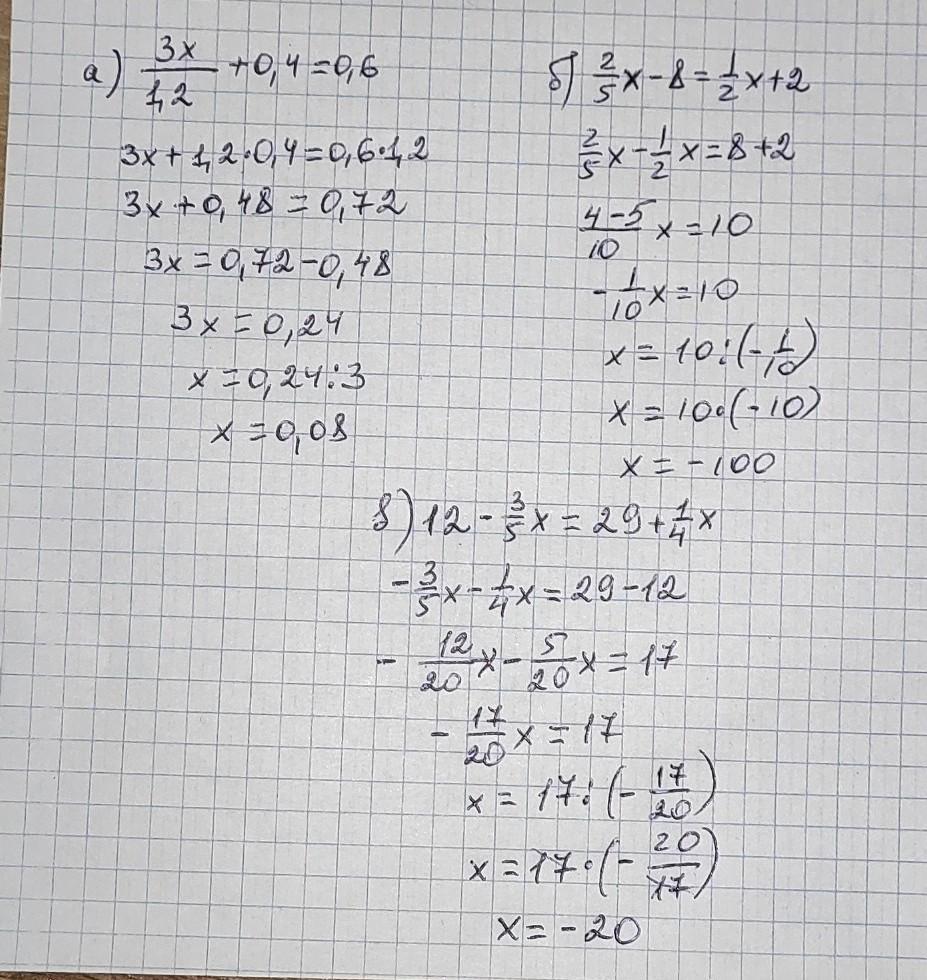 а) 3x/1,2 + 0,4 = 0,6
3x + 1,2 · 0,4 = 0,6 · 1,2
3x + 0,48 = 0,72
3x = 0,72 - 0,48
3x = 0,24
x = 0,24 : 3
x = 0,08
б) 2/5 x - 8 = 1/2 x + 2
2/5 x - 1/2 x = 8 + 2
4-5/10 x = 10
- 1/10 x = 10
x = 10 : (- 1/10)
x = 10 · (-10)
x = -100
в) 12 - 3/5 x = 29 + 1/4 x
- 3/5 x - 1/4 x = 29 - 12
- 12/20 x - 5/20 x = 17
- 17/20 x = 17
x = 17 : (- 17/20)
x = 17 · (- 20/17)
x = -20